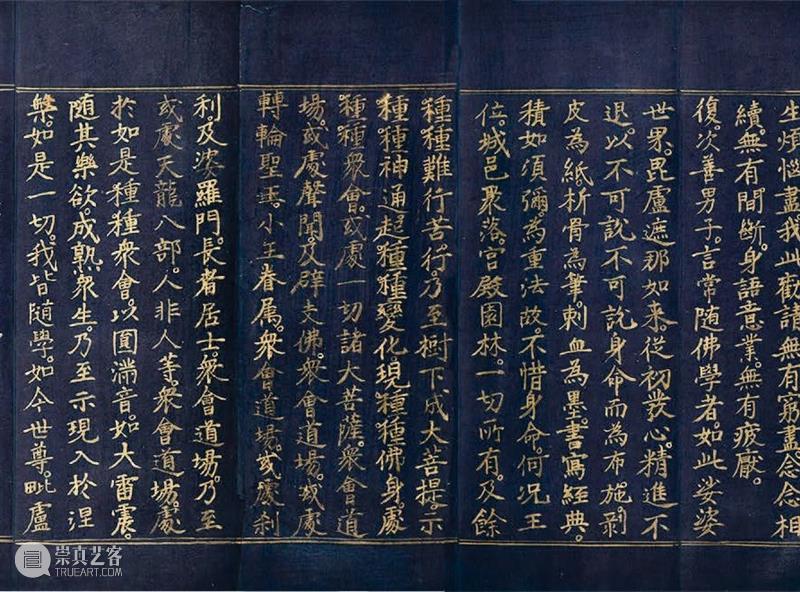 生煩惱盡我此勸請無有窮盡念念相
續。無有間斷。身語意業。無有疲厭。
復次善男子。言常隨佛學者。如此娑婆
世界。毘盧遮那如來。從初發心。精進不
退。以不可說不可說身命而為布施。剥
皮為紙析骨為筆。刺血為墨。書寫經典。
積如須彌。為重法故。不惜身命。何況王
位。城邑聚落。宮殿園林。一切所有。及餘
種種難行苦行。乃至樹下。成大菩提。示
種種神通。起種種變化。現種種佛身。處
種種眾會。或處一切諸大菩薩。眾會道
場。或處聲聞。及辟支佛。眾會道場。或處
轉輪聖王。小王眷属。眾會道場。或處刹
利及婆羅門。長者居士。眾會道場。乃至
或處天龍八部。人非人等。眾會道場。處
於如是種種眾會。以圓滿音。如大雷震。
隨其樂欲。成熟眾生。乃至示現入於涅
槃。如是一切。我皆隨學。如今世尊。毗盧
崇真艺客
TRUEART.COM